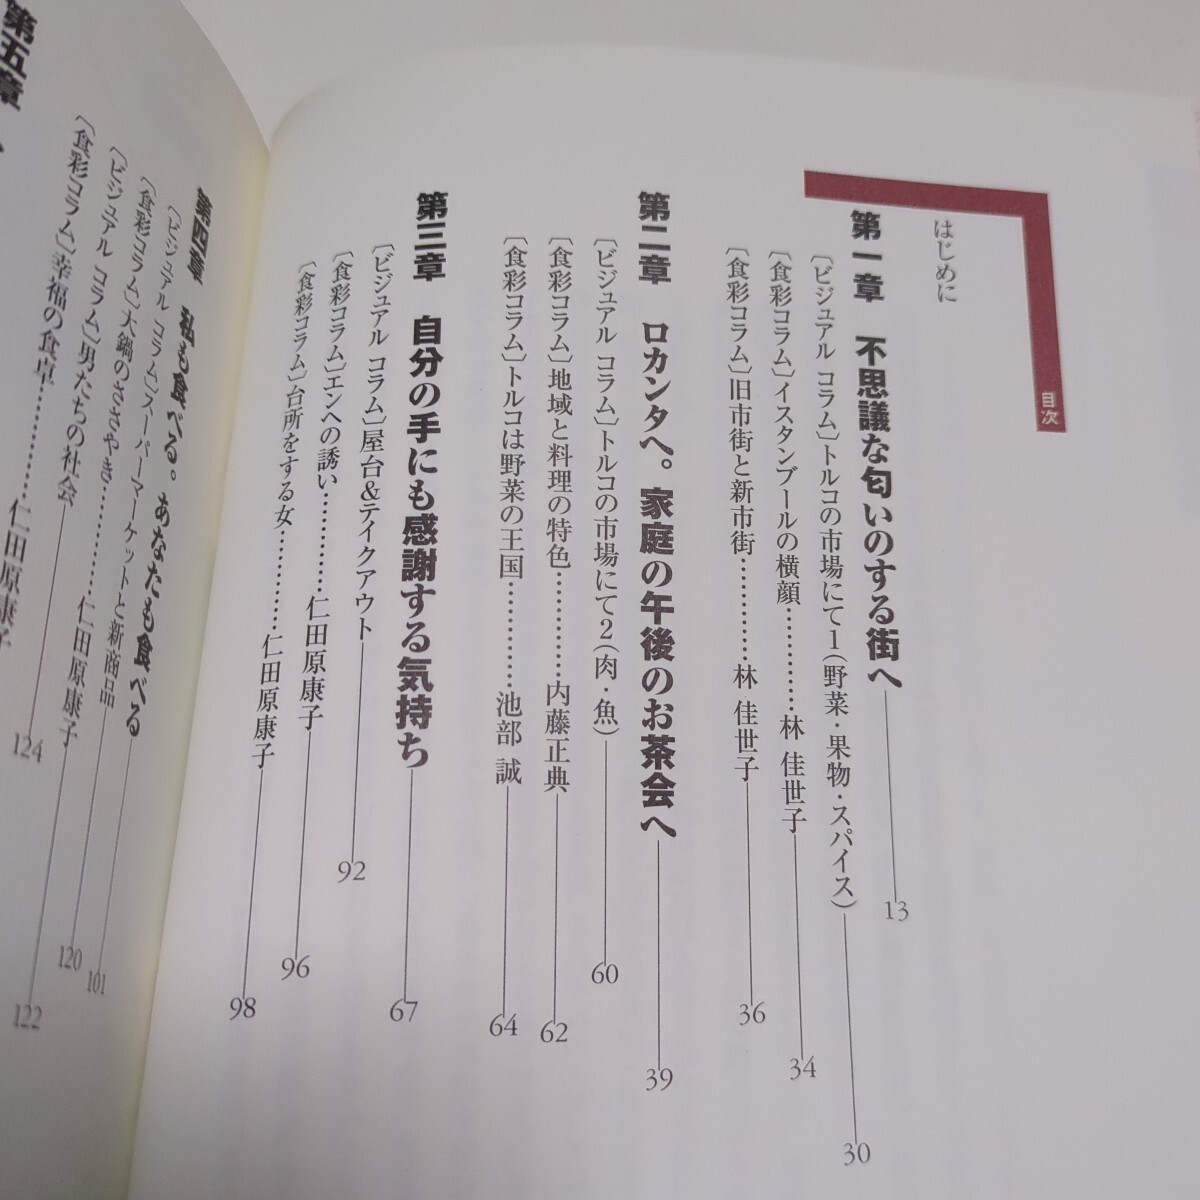 目次
はじめに
第一章 不思議な匂いのする街へ 13
〔ビジュアル コラム〕トルコの市場にて1（野菜・果物・スパイス） 30
〔食彩コラム〕イスタンブールの横顔…………林 佳世子 34
〔食彩コラム〕旧市街と新市街…………林 佳世子 36
第二章 ロカンタへ。家庭の午後のお茶会へ 39
〔ビジュアル コラム〕トルコの市場にて2（肉・魚） 60
〔食彩コラム〕地域と料理の特色…………内藤正典 62
〔食彩コラム〕トルコは野菜の王国…………池部 誠 64
第三章 自分の手にも感謝する気持ち 67
〔ビジュアル コラム〕屋台＆テイクアウト 92
〔食彩コラム〕エンへの誘い…………仁田原康子 96
〔食彩コラム〕台所をする女…………仁田原康子 98
第四章 私も食べる。あなたも食べる 101
〔ビジュアル コラム〕スーパーマーケットと新商品 120
〔食彩コラム〕大鍋のささやき…………仁田原康子 122
〔ビジュアル コラム〕男たちの社会 124
〔食彩コラム〕幸福の食卓…………仁田原康子
第五章